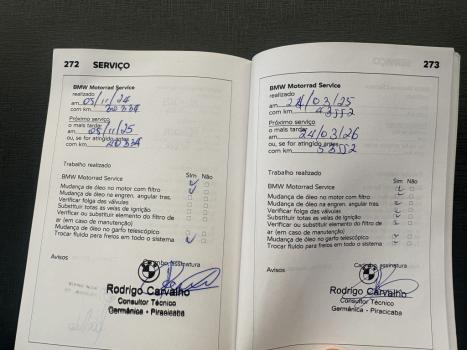 272 SERVIÇO
BMW Motorrad Service
realizado
am 05/11/24
com km 30334
Próximo serviço
o mais tardar
am 05/11/25
ou, se for atingido antes,
com km 40334
Trabalho realizado
Sim Não
BMW Motorrad Service
Mudança de óleo no motor com filtro
Mudança de óleo na engren. angular tras.
Verificar folga das válvulas
Substituir todas as velas de ignição
Verificar ou substituir elemento do filtro de
ar (em caso de manutenção)
Mudança de óleo no garfo telescópico
Trocar fluido para freios em todo o sistema
Avisos
Carimbo, assinatura
Rodrigo Carvalho
Consultor Técnico
Germânica - Piracicaba
273
BMW Motorrad Service
realizado
am 24/03/25
com km 43552
Próximo serviço
o mais tardar
am 24/03/26
ou, se for atingido antes,
com km 53552
Trabalho realizado
Sim Não
BMW Motorrad Service
Mudança de óleo no motor com filtro
Mudança de óleo na engren. angular tras.
Verificar folga das válvulas
Substituir todas as velas de ignição
Verificar ou substituir elemento do filtro de
ar (em caso de manutenção)
Mudança de óleo no garfo telescópico
Trocar fluido para freios em todo o sistema
Avisos
Carimbo, assinatura
Rodrigo Carvalho
Consultor Técnico
Germânica - Piracicaba